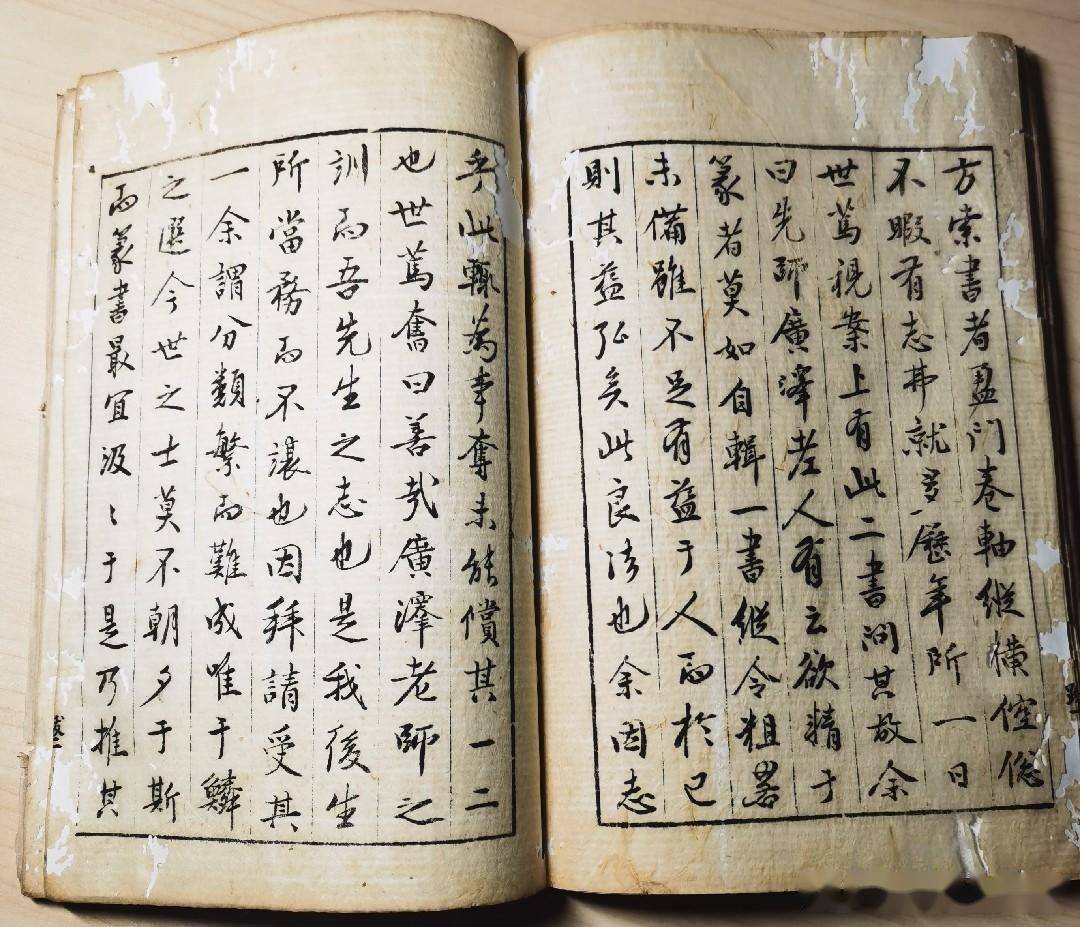 方索書者盈门卷軸縱橫倥偬
不暇有志弗就多歷年所一日
世篤視案上有此二書问其故余
曰先師廣澤老人有云欲精于
篆者莫如自輯一書縱令粗畧
未備雖不足有益于人而於己
則其益弘矣此良法也余因志
乎此輙為事奪未能償其一二
也世篤奮曰善哉廣澤老師之
訓而吾先生之志也是我後生
所當務而不讓也因拜請受其
一余謂分類繁而難成唯千鱗
之選今世之士莫不朝夕于斯
而篆書最宜汲〻于是乃推其